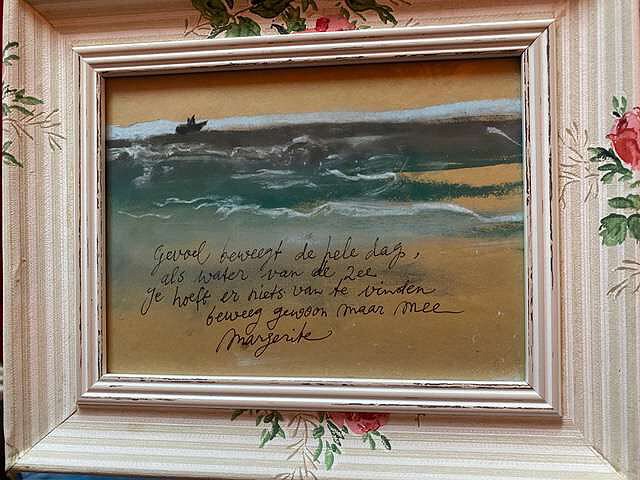 Gevoel beweegt de hele dag,
als water van de zee
Je hoeft er niets van te vinden
beweeg gewoon maar mee
Margerite